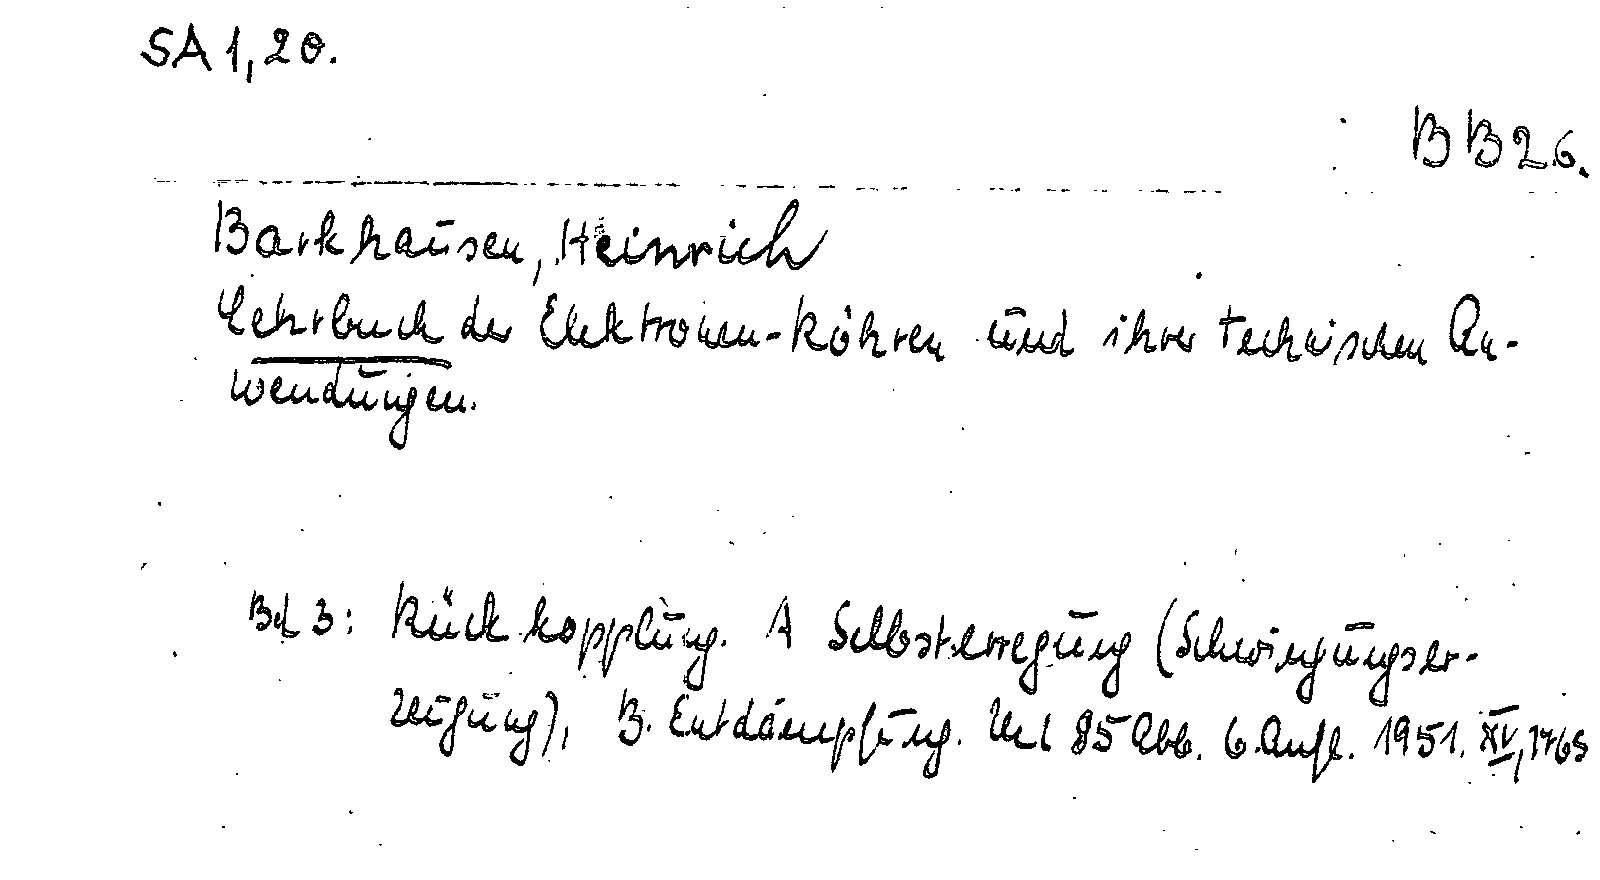 SA 1,20.
BB26.
Barkhausen, Heinrich
Lehrbuch der Elektronen-Röhren und ihrer technischen An-
wendungen.
Bd 3: Rückkopplung. A Selbsterregung (Schwingungser-
zeugung), B. Entdämpfung. Mit 85 Abb. 6. Aufl. 1951. XV, 176S